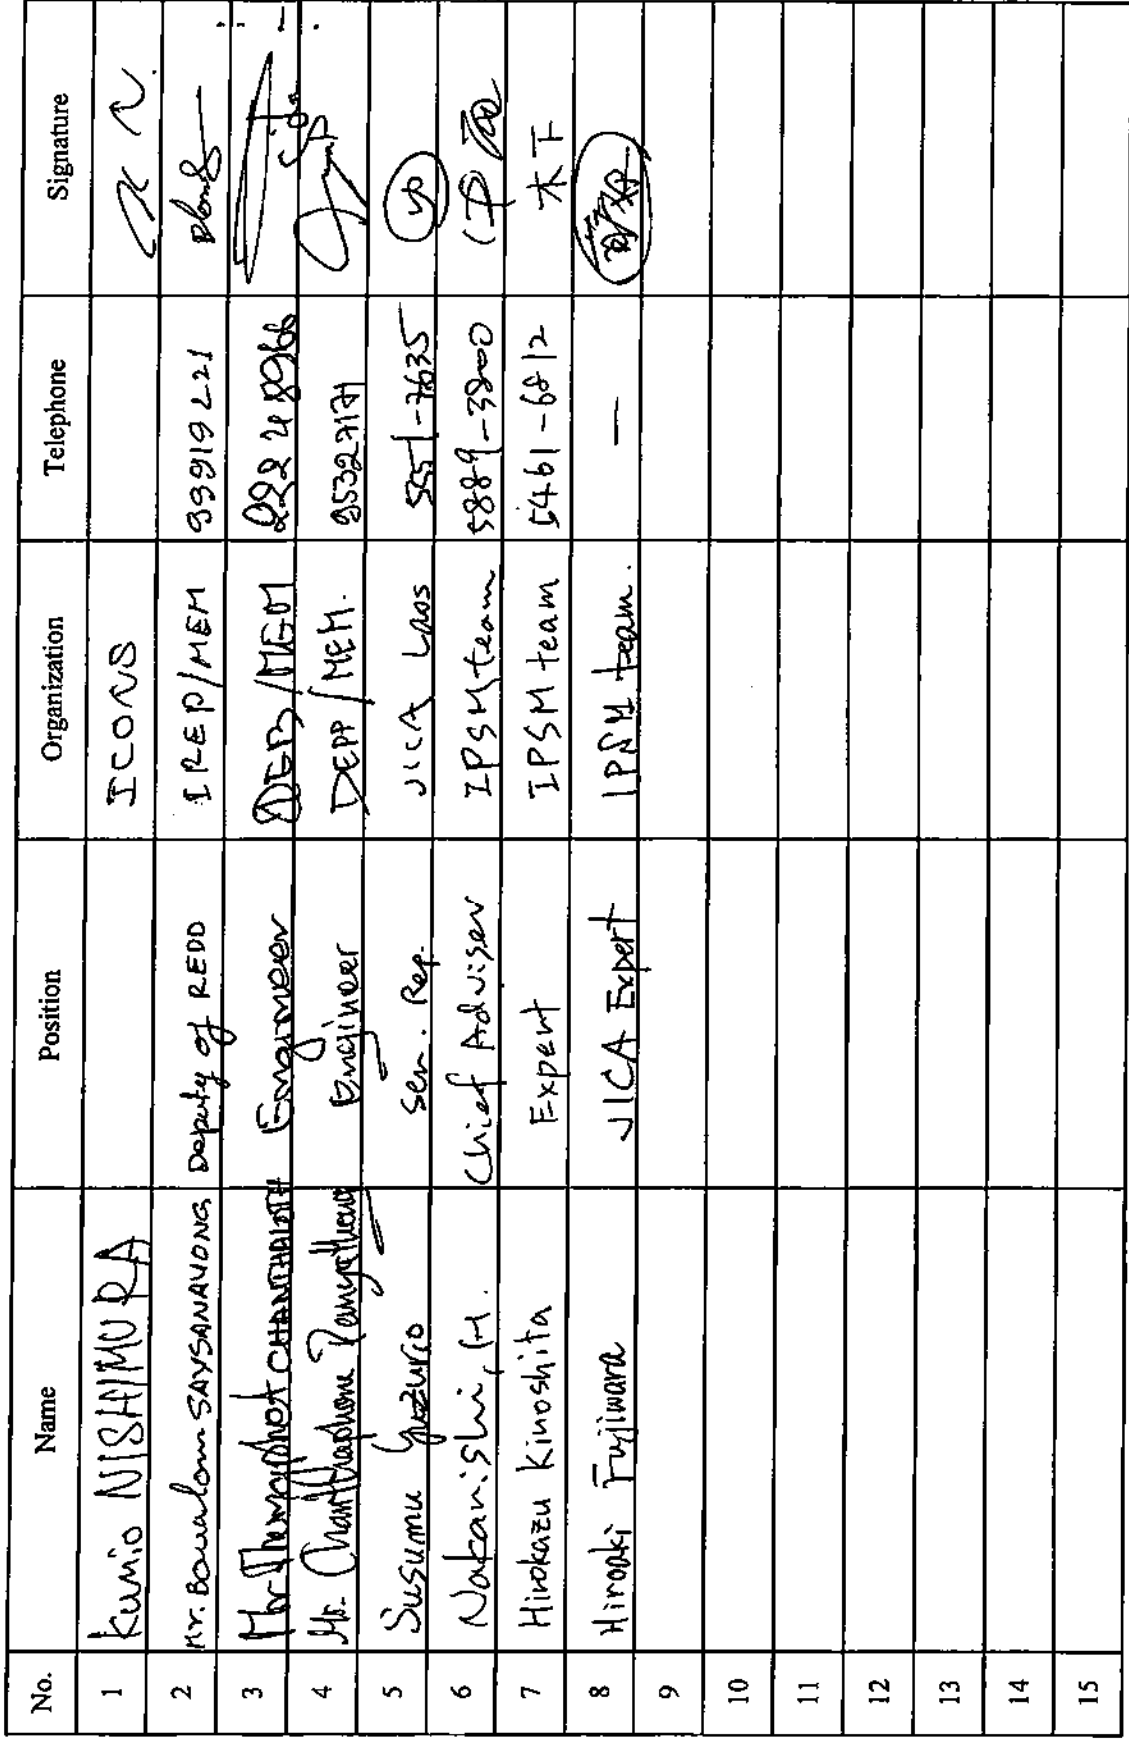 No. Name Position Organization Telephone Signature
1 Kunio NISHIMURA ICONS
2 Mr. Boualom SAYSANAVONG Deputy of REDD IREP/MEM 99919221
3 Engineer DEB/MEM
4 Mr. Engineer DEPP/MEM. 95327171
5 Susumu Yuzurio Sen. Rep. JICA Laos 5551-7635
6 Nakanishi, H. Chief Adviser IPSM team 5889-3800 中西
7 Hirokazu Kinoshita Expert IPSM team 5461-6812 木下
8 Hiroaki Fujiwara JICA Expert IPSM team. —
9
10
11
12
13
14
15